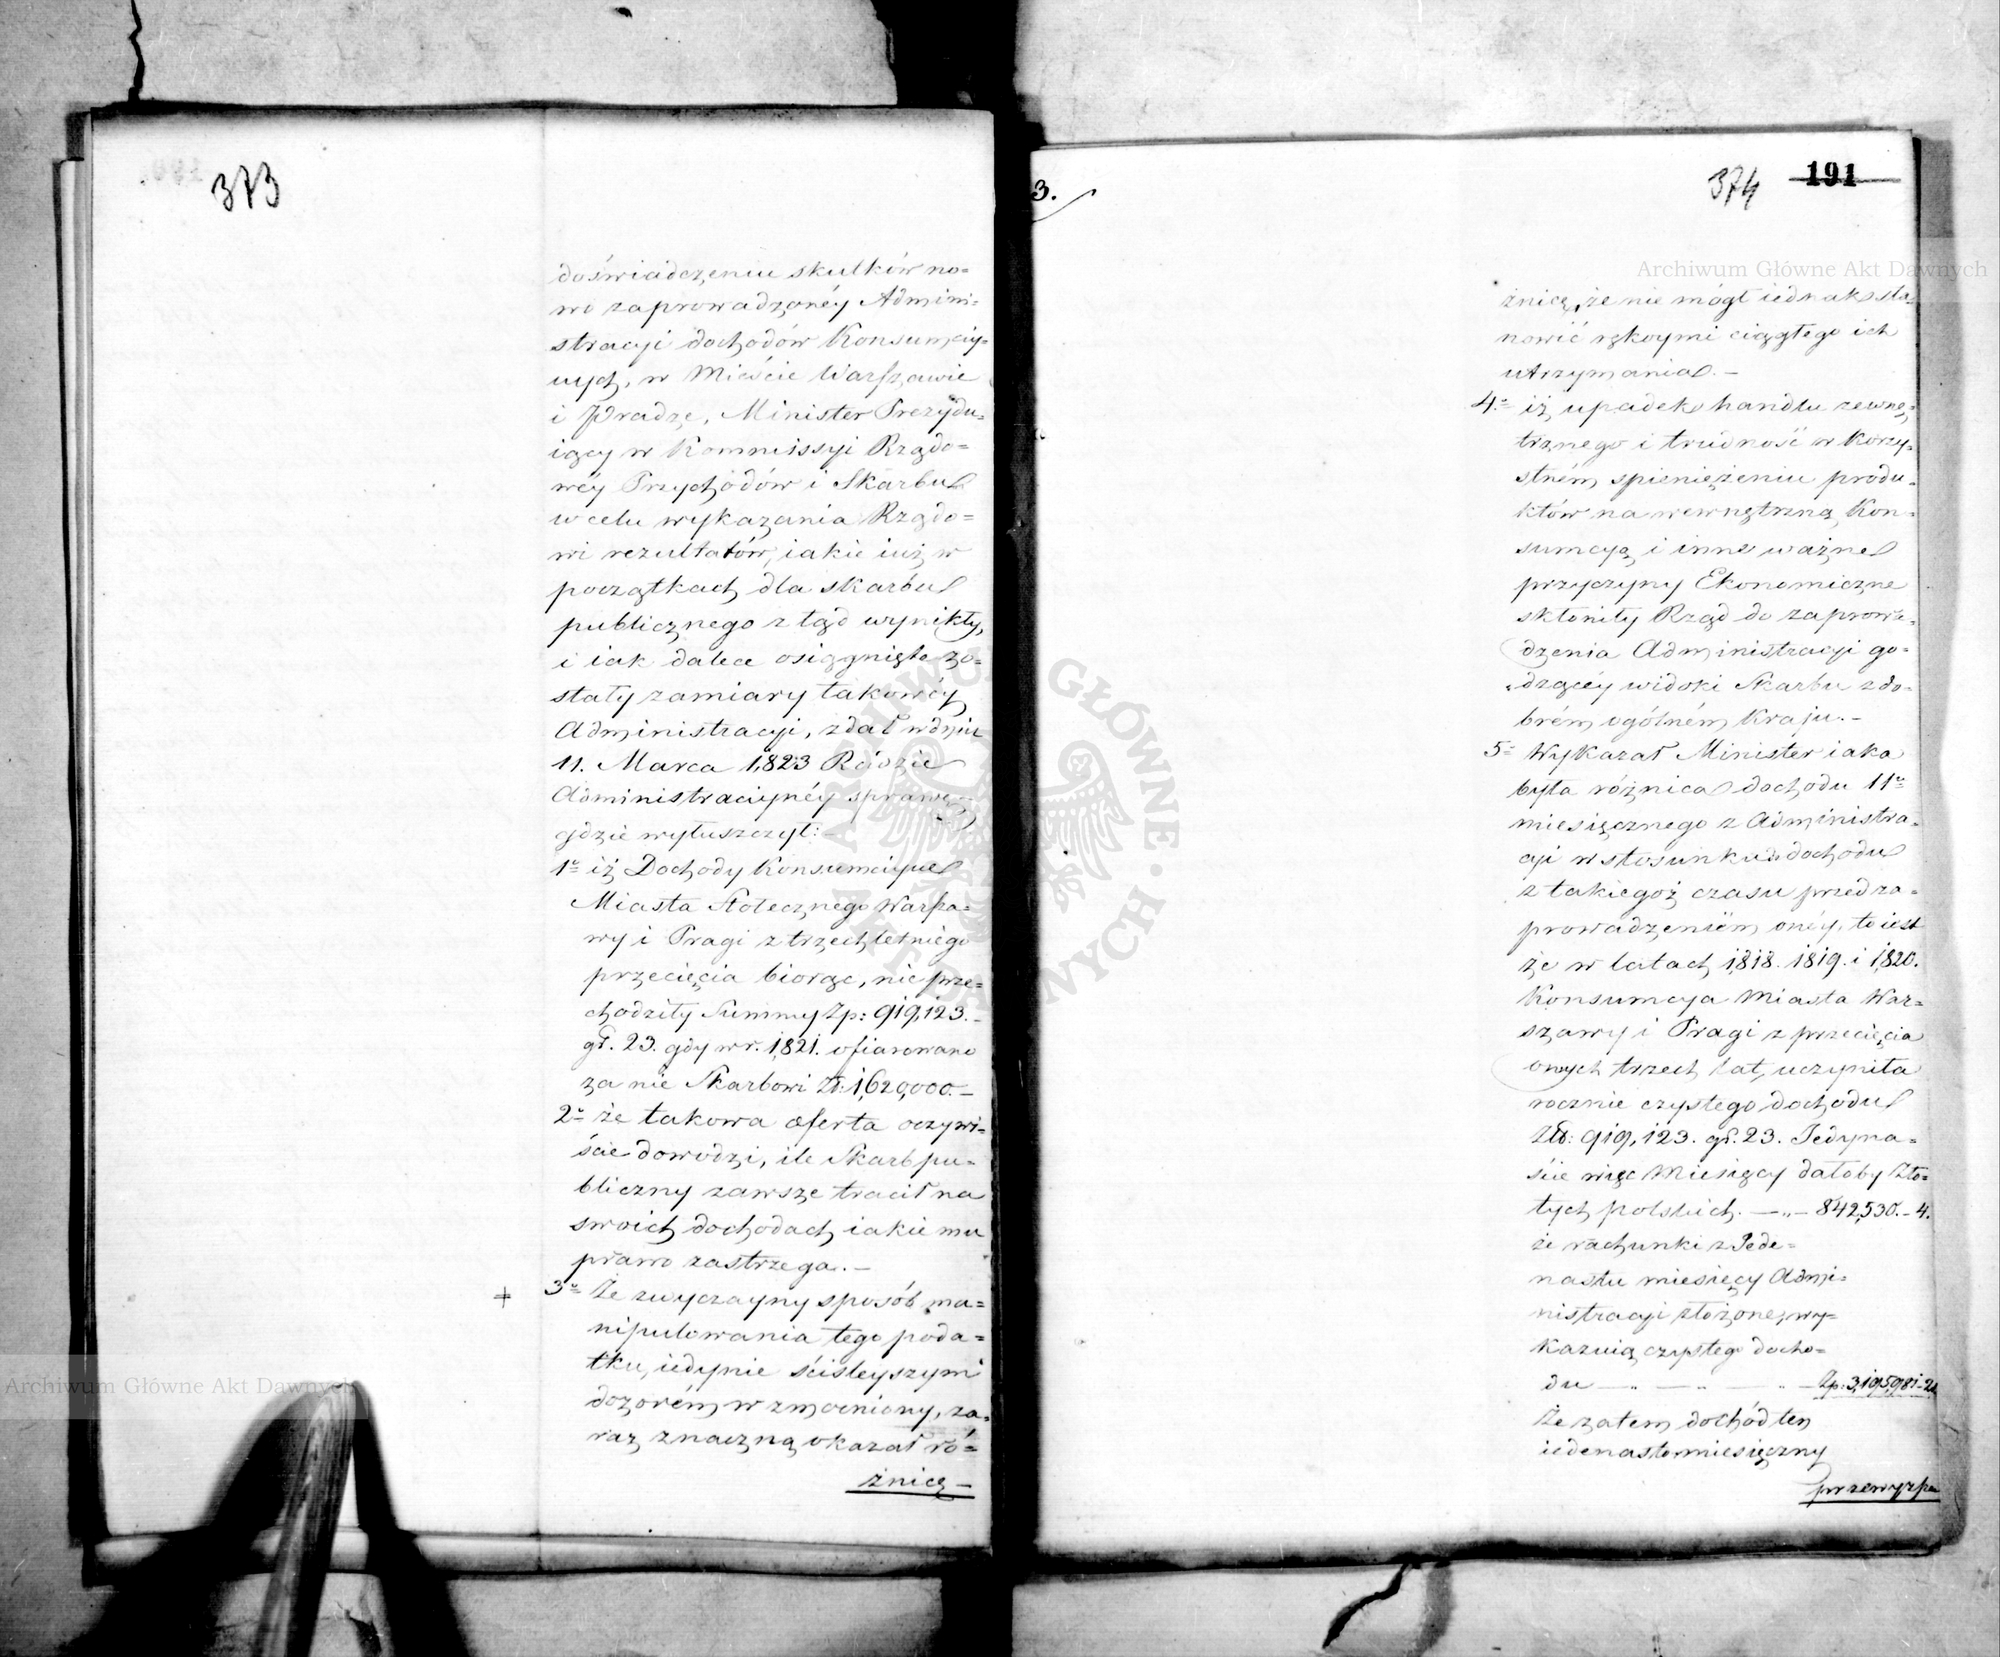 373
doświadczeniu skutków no=
wo zaprowadzonéy Admini=
stracyi dochodów Konsumcyi=
nych, w Mieście Warszawie
i Pradze, Minister Prezydu=
iący w Kommissyi Rządo=
wéy Przychodów i Skarbu
w celu wykazania Rządo=
wi rezultatów, iakie iuż w
początkach dla skarbu
publicznego z tąd wynikły,
i iak dalece osiągnięte zo=
stały zamiary takowéy
Administracyi, zdał w dniu
11. Marca 1823 Radzie
Administracyinéy sprawę
gdzie wyłuszczył: –
1º iż Dochody Konsumcyine
Miasta Stołecznego Warsza=
wy i Pragi z trzechletniego
przecięcia biorąc, nie prze=
chodziły Summy Zp: 919,123. –
gr. 23. gdy w r. 1821. ofiarowano
za nie Skarbowi Zł: 1,620,000. –
2º że takowa oferta oczywi=
ście dowodzi, ile Skarb pu=
bliczny zawsze tracił na
swoich dochodach iakie mu
prawo zastrzega. –
3º Że zwyczayny sposób ma=
nipulowania tego poda=
tku, iedynie ściśleyszym
dozorém wzmocniony, za=
raz znaczną okazał ró=
żnicę –
3.
374 191
żnicę, że nie mógł iednak sta=
nowić rękoymi ciągłego ich
utrzymania. –
4º iż upadek handlu zewnę=
trznego i trudność w korzy=
stném spieniężeniu produ=
któw na wewnętrzną Kon=
sumcyą i inne ważne
przyczyny Ekonomiczne
skłoniły Rząd do zaprowa=
dzenia Administracyi go=
dzącéy widoki Skarbu z do=
brém ogólném Kraju. –
5º Wykazał Minister iaka
była różnica dochodu 11º
miesięcznego z Administra=
cyi w stosunku do dochodu
z takiegoż czasu przed za=
prowadzeniém onéy, to iest
że w latach 1818. 1819. i 1820.
Konsumcya Miasta War=
szawy i Pragi z przecięcia
onych trzech lat, uczyniła
rocznie czystego dochodu
Złt: 919,123. gr. 23. Jedyna=
ście więc miesięcy dałoby Zło=
tych polskich. — " — 842,530. – 4.
że rachunki z Jede=
nastu miesięcy Admi=
nistracyi złożone, wy=
kazuią czystego docho=
du — " — — " — — " — Zp: 3,195,981 – 21
Że zatem dochód ten
iedenastomiesięczny
przewyzsza
Archiwum Główne Akt Dawnych
Archiwum Główne Akt Dawnych
ARCHIWUM GŁÓWNE AKT DAWNYCH